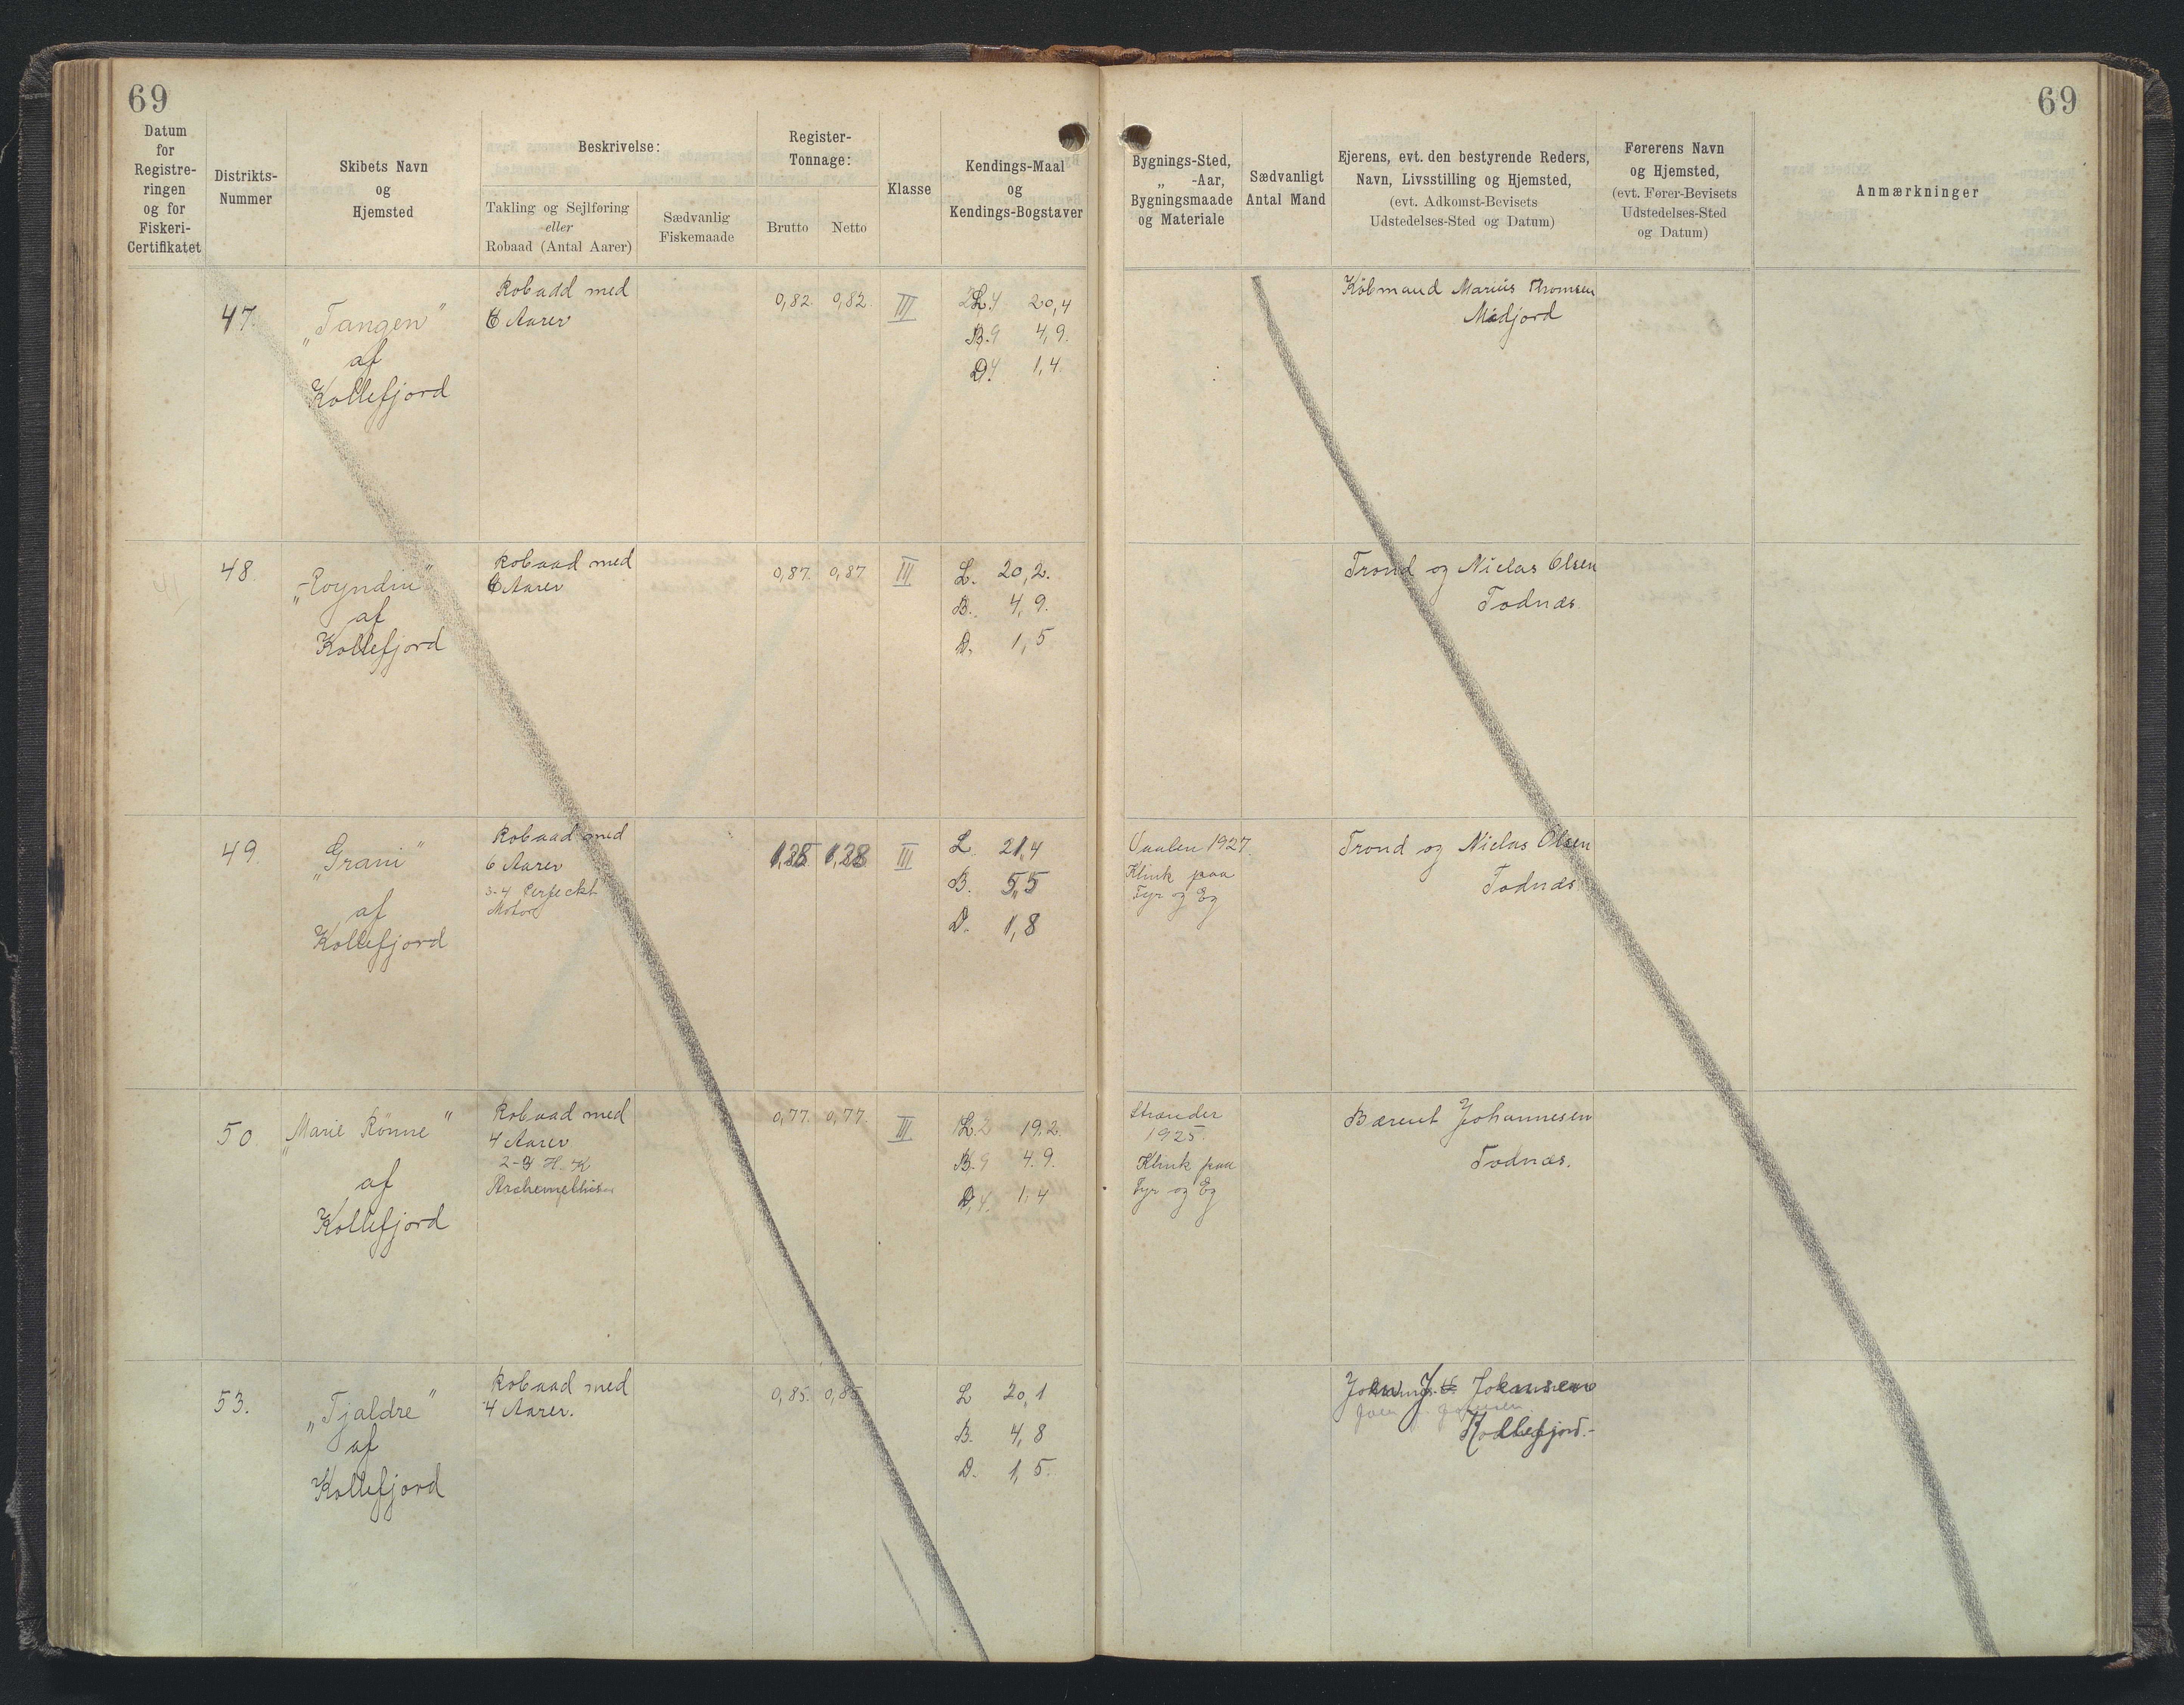 69
69
Datum
for
Registre-
ringen
og for
Fiskeri-
Certifikatet
Distrikts-
Nummer
Skibets Navn
og
Hjemsted
Beskrivelse:
Takling og Sejlføring
eller
Robaad (Antal Aarer)
Sædvanlig
Fiskemaade
Register-
Tonnage:
Brutto
Netto
Klasse
Kendings-Maal
og
Kendings-Bogstaver
Bygnings-Sted,
„ -Aar,
Bygningsmaade
og Materiale
Sædvanligt
Antal Mand
Ejerens, evt. den bestyrende Reders,
Navn, Livsstilling og Hjemsted,
(evt. Adkomst-Bevisets
Udstedelses-Sted og Datum)
Førerens Navn
og Hjemsted,
(evt. Fører-Bevisets
Udstedelses-Sted
og Datum)
Anmærkninger
47.
„Tangen"
af
Kollefjord
Robaad med
6 Aarer
0,82. 0,82. III
L. 20,4
B. 4,9.
D. 1,4
Købmand Marius Thomsen
Midjord
48
„Royndin"
af
Kollefjord
Robaad med
6 Aarer
0,87. 0,87 III
L. 20,2.
B. 4,9.
D. 1,5
Trond og Niclas Olsen
Todnæs.
49.
„Grani"
af
Kollefjord
Robaad med
6 Aarer
3-4 Perfeckt
Motor
1,28 1,28 III
L. 21,4
B. 5,5
D. 1,8
Vaalen 1927.
Klink paa
Fyr og Eg
Trond og Niclas Olsen
Todnæs
50.
„Marie Rönne"
af
Kollefjord
Robaad med
4 Aarer
H. K
0,77. 0,77. III
L. 19,2.
B. 4.9.
D. 1,4
Strænder
1925.
Klink paa
Fyr og Eg
Bærent Johannesen
Todnæs.
53.
„Tjaldre"
af
Kollefjord
Robaad med
4 Aarer.
0,85. 0,85
L 20,1
B. 4,8
D. 1,5.
J. Johansen
Kollefjord.-